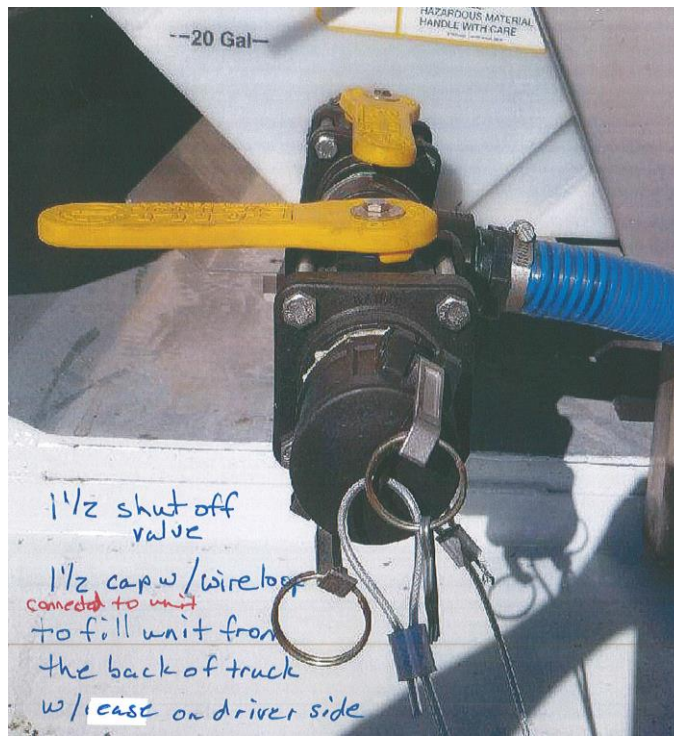 HAZARDOUS MATERIAL
HANDLE WITH CARE
--20 Gal—
1 1/2 shut off
valve
1 1/2 cap w/wireloop
connected to unit
to fill unit from
the back of truck
w/ease on driver side